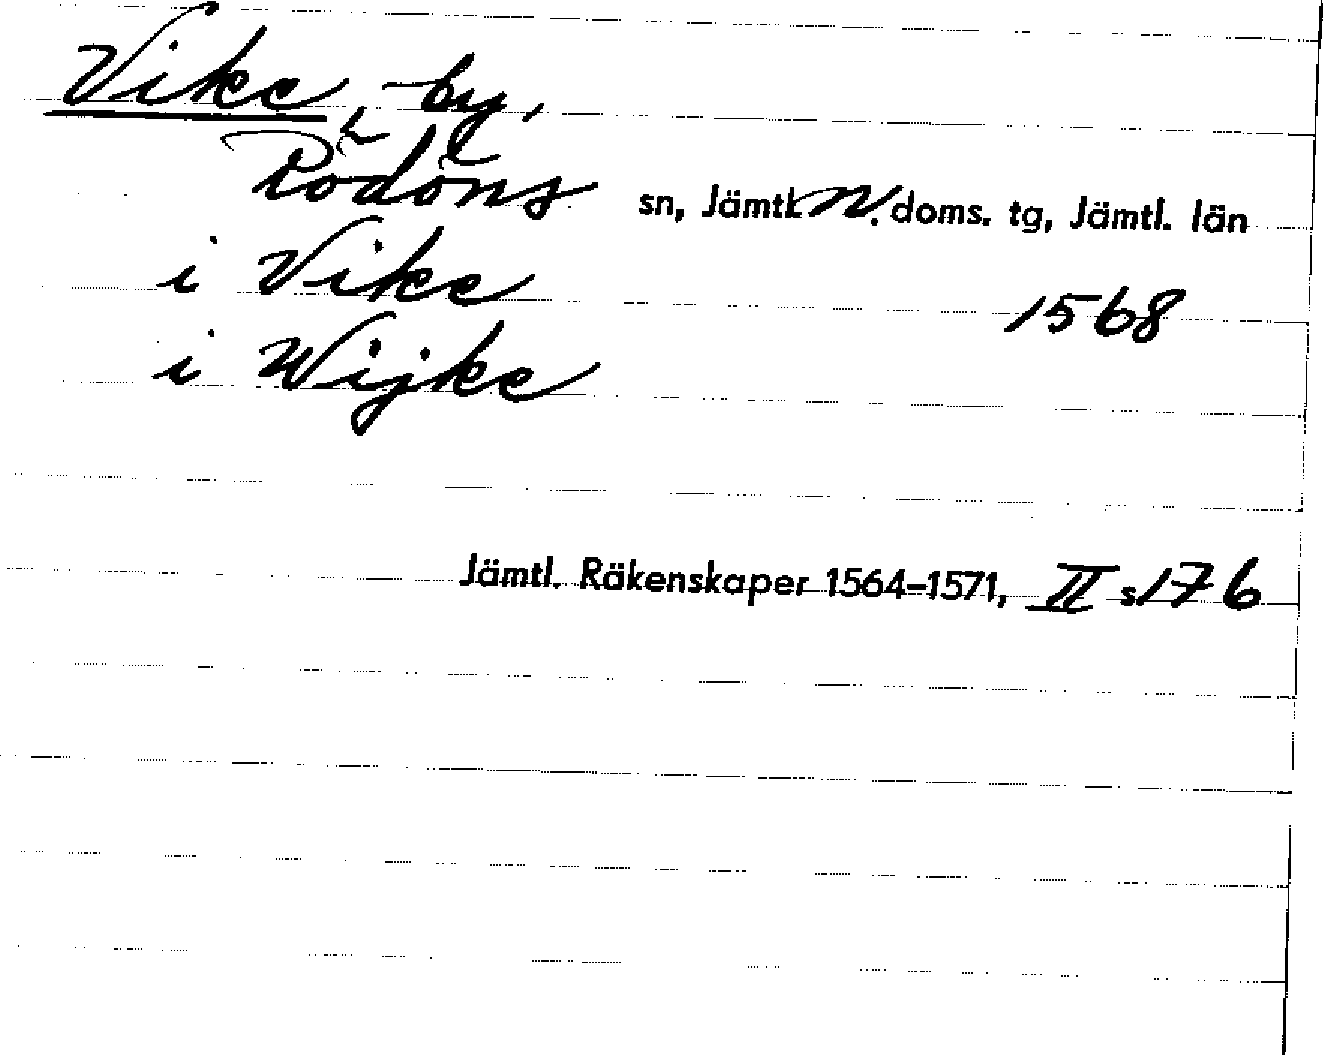 Vike, by,
Rödöns sn, Jämtl. N. doms. tg, Jämtl. län
i Vike 1568
i Wijke
Jämtl. Räkenskaper 1564-1571, II s 176